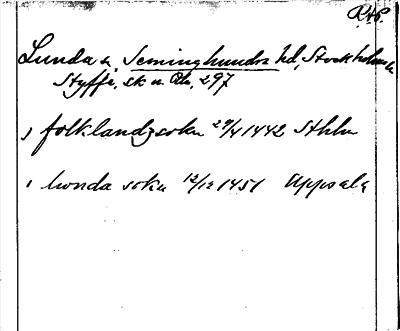 RAp.
Lunda s. Seminghundra hd, Stockholms l.
Styffe, sk u. Un, 297
) folklandz sokn 29/4 1442 Sthlm
i lwnda sokn 12/12 1451 Uppsala